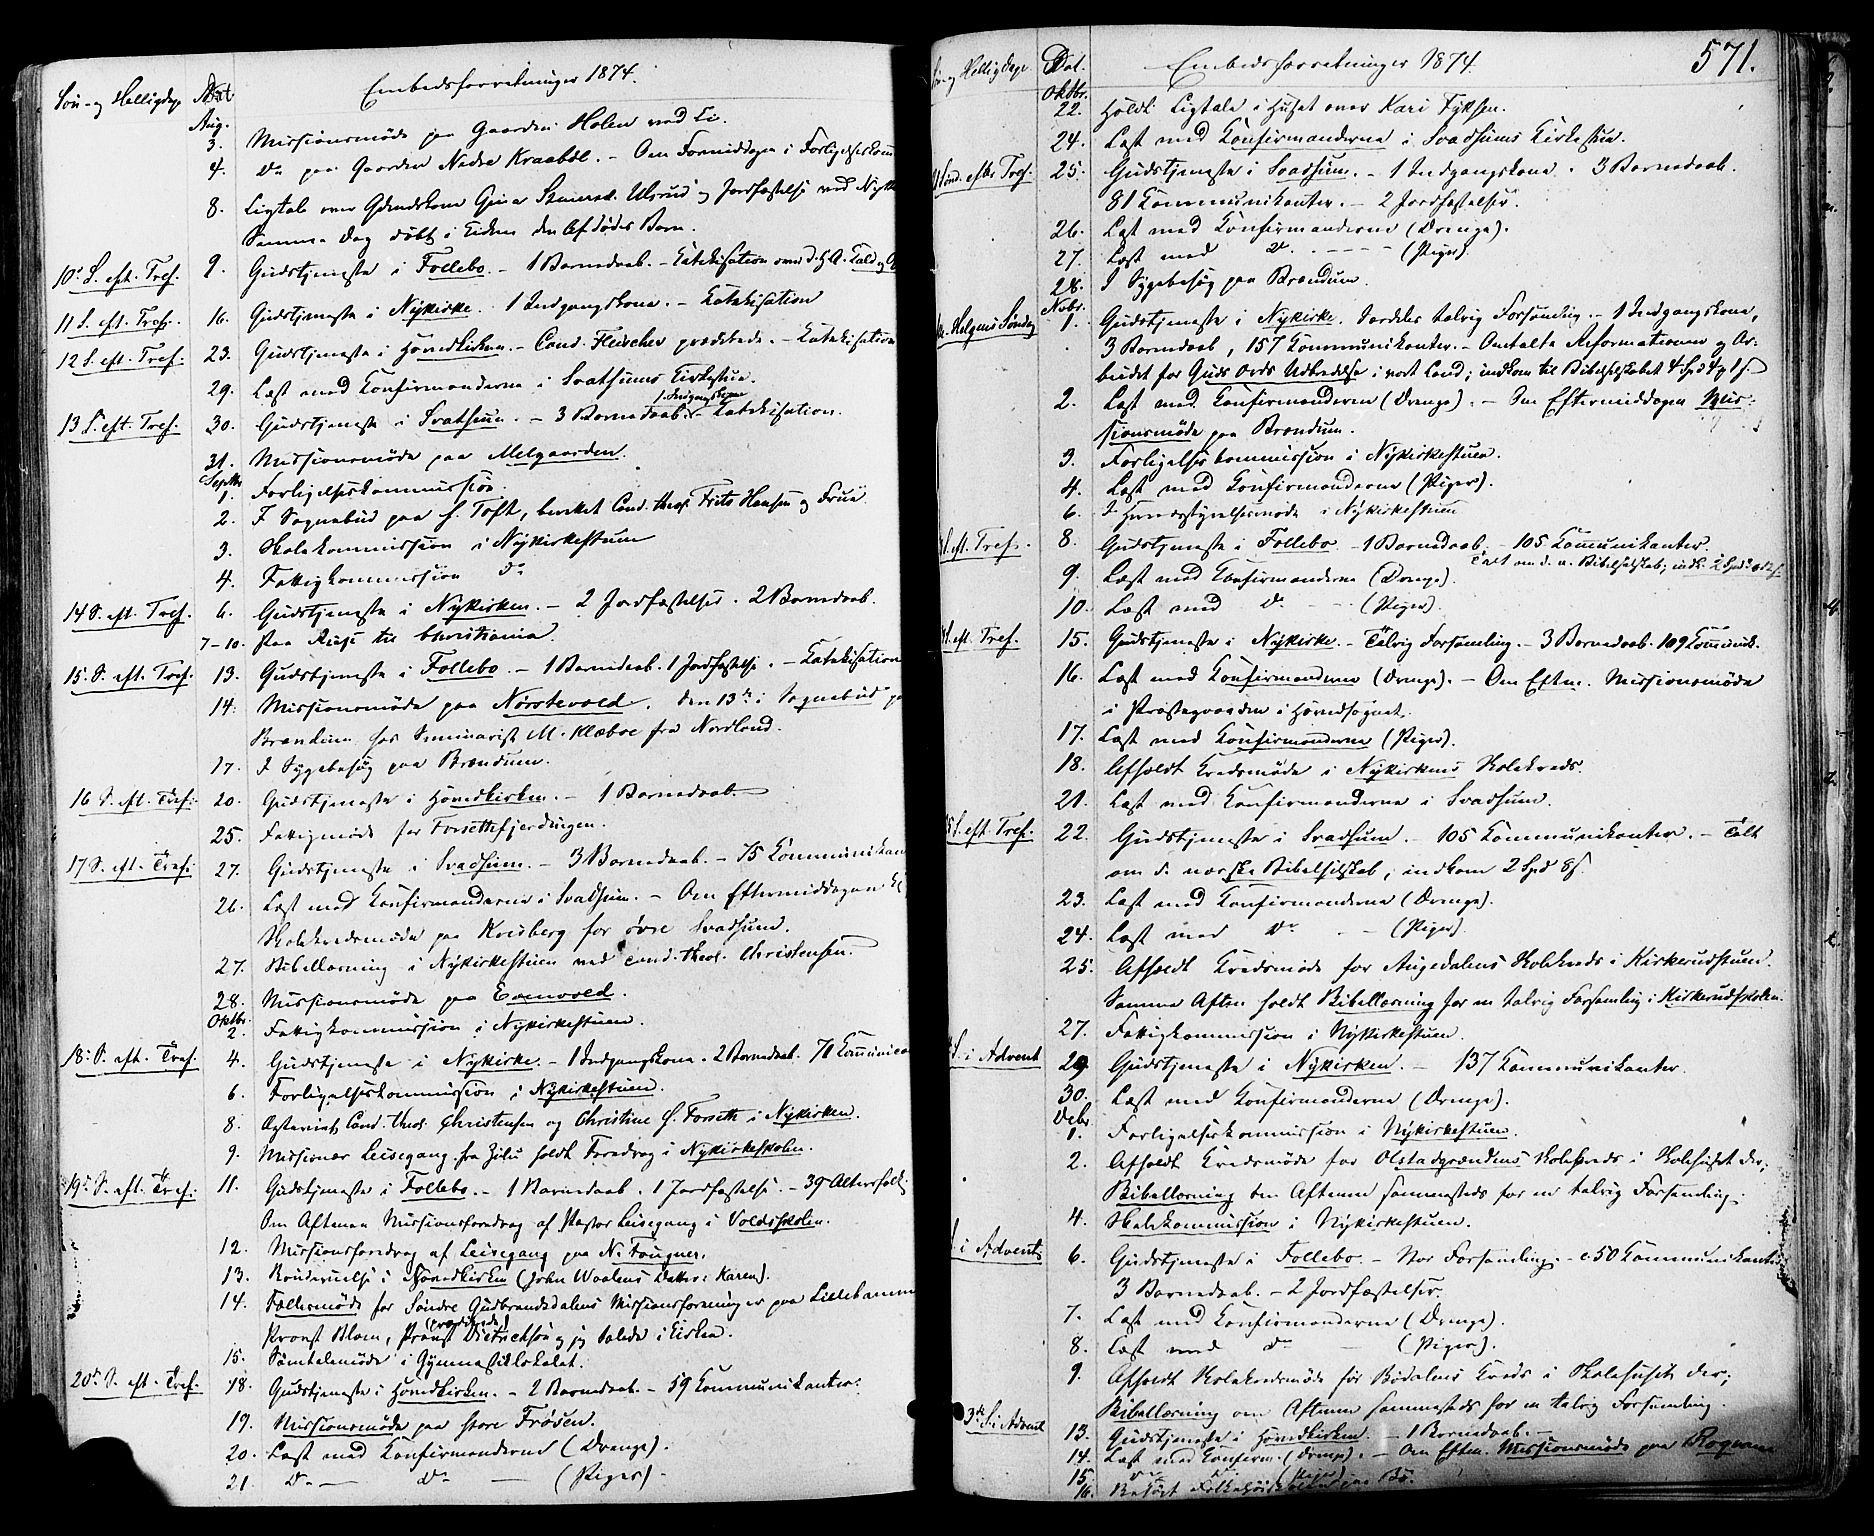 Søn- og Helligdage Dat Embedsforretninger 1874.
Aug.
3. Missionsmøde paa Gaarden Holen ved Li.
4. do paa Gaarden Nedre Kraabøl. - Om Formiddagen i Forligelseskomm
8. Ligtale over Gina Ulsrud og Jordfæstelse ved Nykir
Samme Dag døbt i Kirken den Afdødes Barn.
10. S. eft. Tref. 9. Gudstjeneste i Follebo. - 1 Barnedaab. - Katekisation over
11 S. eft. Tref. 16. Gudstjeneste i Nykirke. 1 Indgangskone. - Katekisation
12 S. eft. Tref. 23. Gudstjeneste i Hovedkirken. - Cand. Fleischer prædikede. - Katekisation
29. Læst med Konfirmanderne i Svatsums Kirkestue.
1 Indgangskone
13 S. eft. Tref. 30. Gudstjeneste i Svatsum. - 3 Barnedaab. - Katekisation.
31. Missionsmøde paa Melgaarden.
Septbr
1. Forligelseskommission.
2. I Sognebud paa S. Toft, besøket Cand. theol. Frits Hansen og Frue.
3. Skolekommission i Nykirkestuen
4. Fattigkommission do
14 S. eft. Tref. 6. Gudstjeneste i Nykirken. - 2 Jordfæstelser. 2 Barnedaab.
7-10. Paa Reise til Christiania.
15. S. eft. Tref. 13. Gudstjeneste i Follebo. - 1 Barnedaab. 1 Jordfæstelse. - Katekisation
14. Missionsmøde paa Norstevold. den 13de i Sognebud paa
hos Seminarist M. Klæboe fra Nordland.
17. I Sygebesøg paa Brændum.
16 S. eft. Tref. 20. Gudstjeneste i Hovedkirken. - 1 Barnedaab.
25. Fattigmøde for Forsetfjerdingen.
17 S. eft. Tref. 27. Gudstjeneste i Svadsum. - 3 Barnedaab. - 75 Kommunikan
26. Læst med Konfirmanderne i Svatsum. - Om Eftermiddagen
Skolekredsmøde paa Kvisberg for øvre Svadsum.
27. Bibellæsning i Nykirkestuen ved Cand. theol. Christensen.
28. Missionsmøde paa Evenvold.
Oktbr.
2. Fattigkommission i Nykirkestuen.
18. S. eft. Tref. 4. Gudstjeneste i Nykirke. - 1 Indgangskone. 2 Barnedaab. 70 Kommunican
6. Forligelseskommission i Nykirkestuen.
8. Ægteviet Cand. theol. Christensen og Christine H. Forseth i Nykirken.
9. Missionær Leisegang fra Zulu holdt Foredrag i Nykirkeskolen.
19. S. eft. Tref. 11. Gudstjeneste i Follebo. - 1 Barnedaab. 1 Jordfæstelse. - 39 Altersfolk
Om Aftenen Missionsforedrag af Pastor Leisegang i Voldsskolen.
12. Missionsforedrag af Leisegang paa N. Fougner.
13. Brudevielse i Hovedkirken (John Datter: Karen).
14. Fællesmøde for Søndre Gudbrandsdalens Missionsforeninger paa Lillehamme
(prædikede)
Provst Blom, Provst Dietrichson og jeg talede i Kirken.
15. Samtalemøde i Gymnastiklokalet.
20de S. eft. Tref. 18. Gudstjeneste i Hovedkirken. - 2 Barnedaab. - 59 Kommunikanter.
19. Missionsmøde paa store Frøsen.
20. Læst med Konfirmanderne (Drenge).
21. Do - do - (Piger).
Søn- og Helligdage Dat. Embedsforretninger 1874. 571.
Oktbr.
22. Holdt Ligtale i Huset over Kari Fyksen.
24. Læst med Konfirmanderne i Svadsums Kirkestue.
Sønd. efter Tref. 25. Gudstjeneste i Svadsum. - 1 Indgangskone. 3 Barnedaab.
81 Kommunikanter. - 2 Jordfæstelser.
26. Læst med Konfirmanderne (Drenge).
27. Læst med do. - - - - (Piger).
28. I Sygebesøg paa Brændum.
Novbr.
Helgens Søndag 1. Gudstjeneste i Nykirke. Særdeles talrig Forsamling. - 1 Indgangskone,
3 Barnedaab, 157 Kommunikanter. - Omtalte Reformationen og Ar-
beidet for Guds Ords Udbredelse i vort Land; indkom til Bibelselskabet 4 Spd 4
2. Læst med Konfirmanderne (Drenge). - Om Eftermiddagen Mis-
sionsmøde paa Brændum.
3. Forligelseskommission i Nykirkestuen.
4. Læst med Konfirmanderne (Piger).
6. I Herredsstyrelsesmøde i Nykirkestuen
S. eft. Tref. 8. Gudstjeneste i Follebo. - 1 Barnedaab. - 105 Kommunikanter.
Talt om d. n. Bibelselskab; indk. 2 Spd
9. Læst med Konfirmanderne (Drenge).
10. Læst med do. - - (Piger).
S. eft. Tref. 15. Gudstjeneste i Nykirke. - Talrig Forsamling. - 3 Barnedaab. 109 Kommunik.
16. Læst med Konfirmanderne (Drenge). - Om Eftm. Missionsmøde
i Præstegaarden i Hovedsognet.
17. Læst med Konfirmanderne (Piger).
18. Afholdt Kredsmøde i Nykirkens Skolekreds.
21. Læst med Konfirmanderne i Svadsum.
S. eft. Tref. 22. Gudstjeneste i Svadsum. - 105 Kommunikanter. - Talt
om d. norske Bibelselskab, indkom 2 Spd 8 s.
23. Læst med Konfirmanderne (Drenge).
24. Læst med do - - (Piger).
25. Afholdt Kredsmøde for Augedalens Skolekreds i Kirkerudstuen.
Samme Aften holdt Bibellæsning for en talrig Forsamling i Kirkerudskolen.
27. Fattigkommission i Nykirkestuen.
S. i Advent 29 Gudstjeneste i Nykirken. - 137 Kommunikanter.
30. Læst med Konfirmanderne (Drenge).
Decbr
1. Forligelseskommission i Nykirkestuen.
2. Afholdt Kredsmøde for Olstadgrændens Skolekreds i Skolehuset der;
Bibellæsning om Aftenen sammesteds for en talrig Forsamling.
4. Skolekommission i Nykirkestuen.
S. i Advent 6. Gudstjeneste i Follebo. - Stor Forsamling. - c. 50 Kommunikanter
3 Barnedaab. - 2 Jordfæstelser.
7. Læst med Konfirmanderne (Drenge).
8. Læst med do - (Piger).
9. Afholdt Skolekredsmøde for Bødalens Kreds i Skolehuset der;
Bibellæsning om Aftenen sammesteds for en talrig Forsamling.
3de S. i Advent 13. Gudstjeneste i Hovedkirken. - 1 Barnedaab. -
14. Læst med Konfirm. (Drenge). - Om Eftm. Missionsmøde paa Rognam
15. do do (Piger)
16. Besøgt Folkehøiskolen paa Bø.